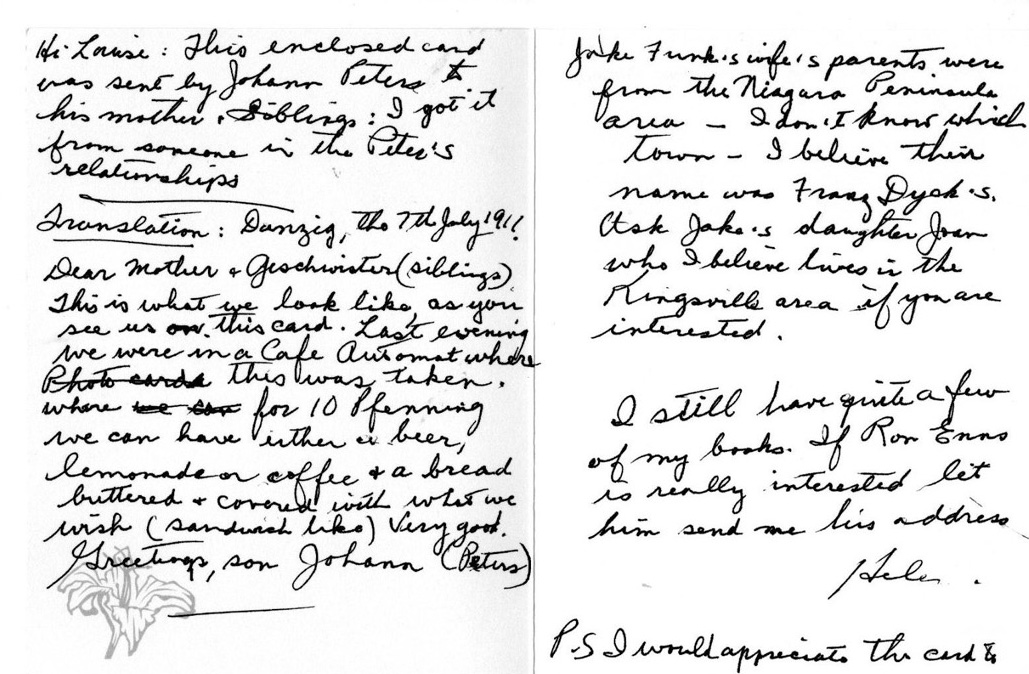 Hi Louise: This enclosed card
was sent by Johann Peters to
his mother & Siblings: I got it
from someone in the Peter's
relationships
Translation: Danzig, the 7th July 1911
Dear Mother & Geschwister (siblings)
This is what we look like, as you
see us on this card. Last evening
we were in a Cafe Automat where
Photo cards this was taken.
where we can for 10 Pfenning
we can have either a beer,
lemonade or coffee & a bread
buttered & covered with what we
wish (sandwich like) Very good.
Greetings, son Johann (Peters)
Jake Funk's wife's parents were
from the Niagara Peninsula
area – I don't know which
town – I believe their
name was Franz Dyck's.
Ask Jake's daughter Joan
who I believe lives in the
Kingsville area if you are
interested.
I still have quite a few
of my books. If Ron Enns
is really interested let
him send me his address
Helen.
P.S I would appreciate the card &